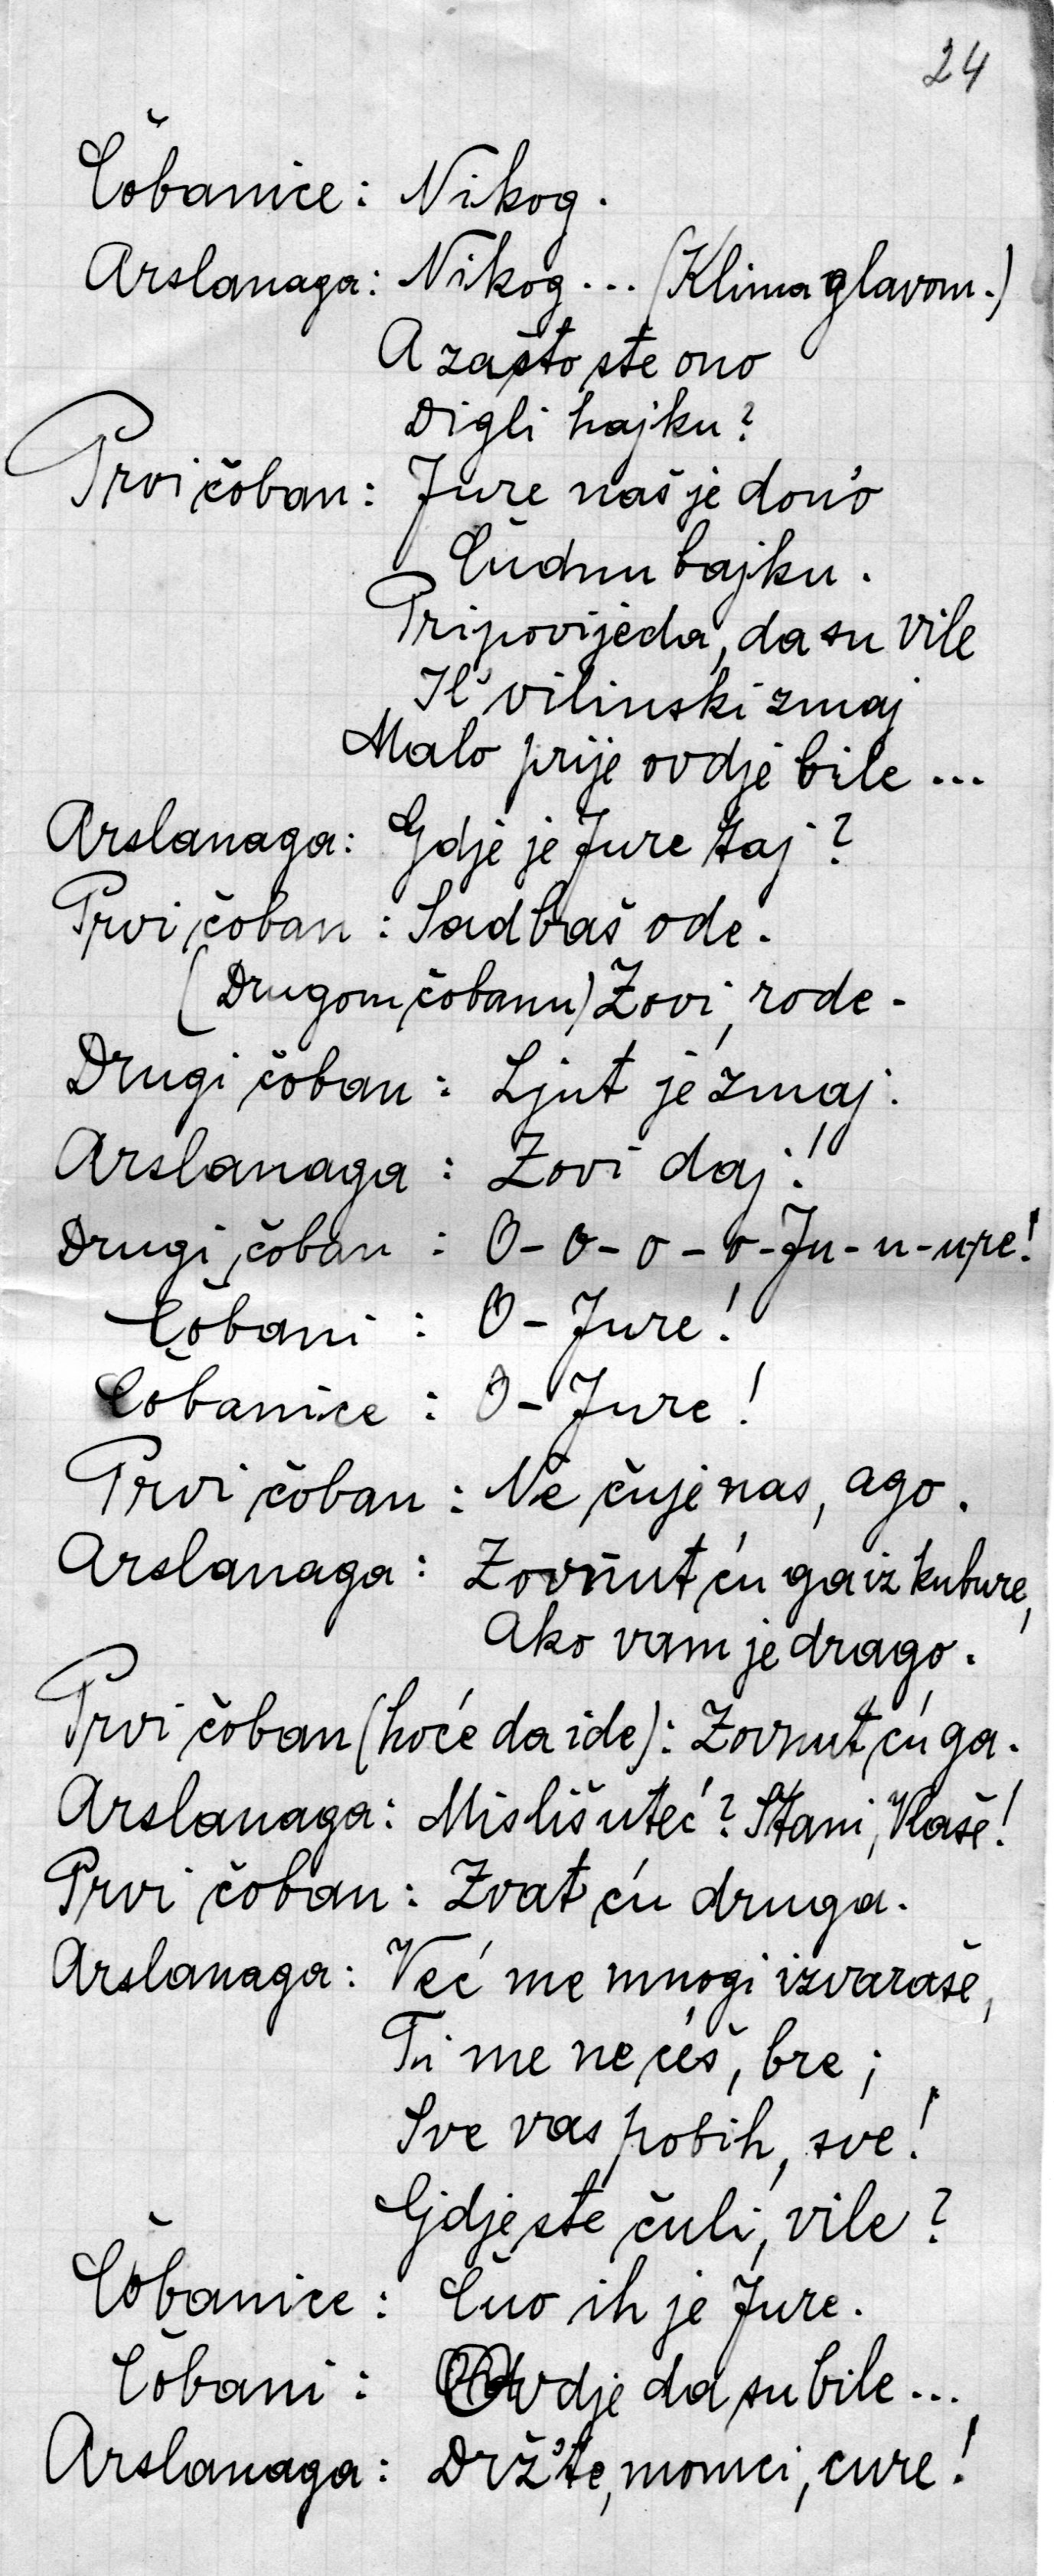 24
Čobanice: Nikog.
Arslanaga: Nikog... (Klima glavom.)
A zašto ste ono
Digli hajku?
Prvi čoban: Jure naš je don'o
Čudnu bajku.
Pripovijeda, da su vile
Il' vilinski zmaj
Malo prije ovdje bile...
Arslanaga: Gdje je Jure taj?
Prvi čoban: Sad baš ode.
(Drugom čobanu) Zovi, rode.
Drugi čoban: Ljut je zmaj.
Arslanaga: Zovi daj!
Drugi čoban: O-o-o-o-Ju-u-u-re!
Čobani: O-Jure!
Čobanice: O-Jure!
Prvi čoban: Ne čuje nas, ago.
Arslanaga: Zovnut ću ga iz kubure,
Ako vam je drago.
Prvi čoban (hoće da ide): Zovnut ću ga.
Arslanaga: Misliš uteć? Stani, Vlaše!
Prvi čoban: Zvat ću druga.
Arslanaga: Već me mnogi izvaraše,
Ti me ne ćeš, bre;
Sve vas pobih, sve!
Gdje ste čuli, vile?
Čobanice: Čuo ih je Jure.
Čobani: Ovdje da su bile...
Arslanaga: Drž'te, momci, cure!